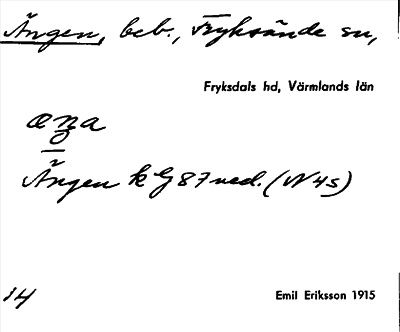 Ängen, beb., Fryksände sn,
Fryksdals hd, Värmlands län
Ängen k G 87 ned. (N 4s)
14
Emil Eriksson 1915